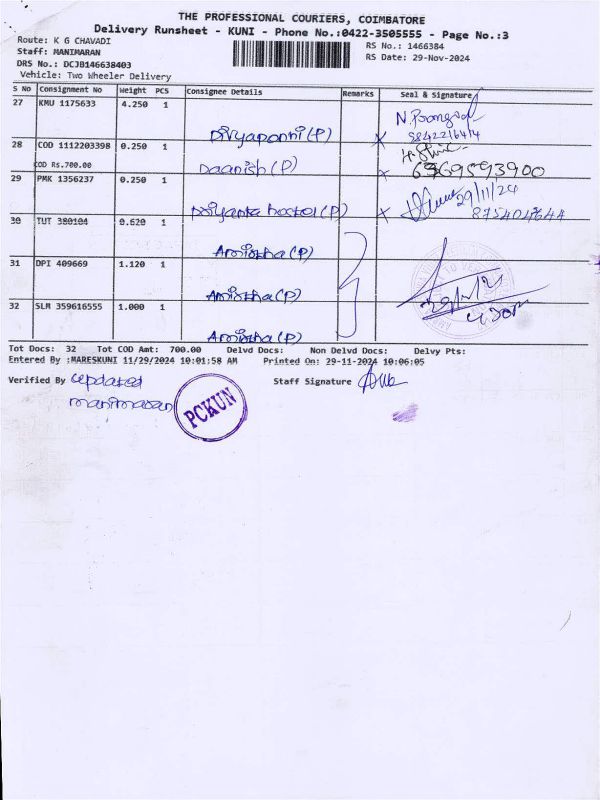 THE PROFESSIONAL COURIERS, COIMBATORE
Delivery Runsheet - KUNI - Phone No.:0422-3505555 - Page No.:3
Route: K G CHAVADI
RS No.: 1466384
Staff: MANIMARAN
RS Date: 29-Nov-2024
DRS No.: DCJB146638403
Vehicle: Two Wheeler Delivery
S No Consignment No Weight PCS Consignee Details Remarks Seal & Signature
27 KMU 1175633 4.250 1 Divyaponni (P)
28 COD 1112203398 0.250 1 Daanish (P) 6369593900
COD Rs.700.00
29 PMK 1356237 0.250 1 Priyanka hostel (P) 29/11/24
30 TUT 380104 0.620 1 Amirtha (P)
31 DPI 409669 1.120 1 Amirtha (P)
32 SLM 359616555 1.000 1 Amirtha (P)
Tot Docs: 32 Tot COD Amt: 700.00 Delvd Docs: Non Delvd Docs: Delvy Pts:
Entered By :MARESKUNI 11/29/2024 10:01:58 AM Printed On: 29-11-2024 10:06:05
Verified By updated Staff Signature
manimaran
PCKUN